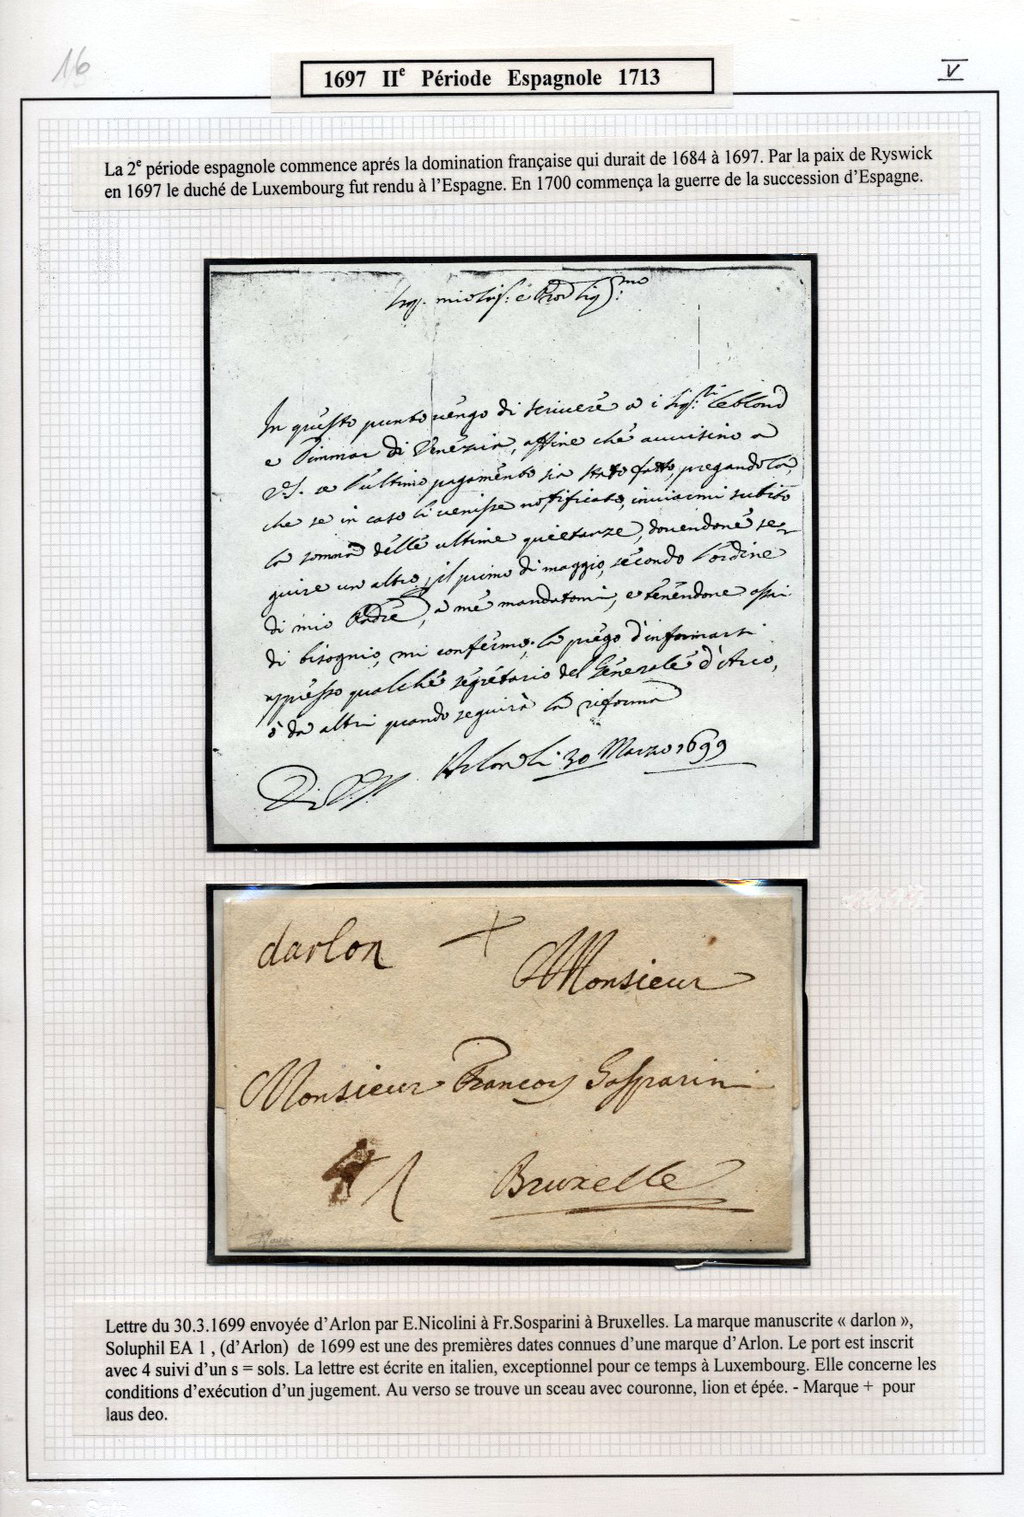 16
V
1697 IIe Période Espagnole 1713
La 2e période espagnole commence aprés la domination française qui durait de 1684 à 1697. Par la paix de Ryswick
en 1697 le duché de Luxembourg fut rendu à l’Espagne. En 1700 commença la guerre de la succession d’Espagne.
In questo punto vengo di scrivere a i Sigri Leblond
e Pimmar di Venezia, affine che avvisino a
V.S. a l'ultimo pagamento sia stato fatto, pregandola,
che se in caso li venisse notificato, inviarmi subito
la somma delle ultime quietanze, dovendone se-
guire un altro, il primo di maggio, secondo l'ordine
di mio Padre, a me mandatomi, e tenendone assai
di bisognio, mi confermo, la priego d'informarsi
appresso qualche segretario del Generale d'Arco,
ò da altri quando seguirà la riforma
Arlon li 30 Marzo 1699
Di V.S.
darlon +
Monsieur
Monsieur Francoy Gasparini
4 s
Bruxelle
Lettre du 30.3.1699 envoyée d’Arlon par E.Nicolini à Fr.Sosparini à Bruxelles. La marque manuscrite « darlon »,
Soluphil EA 1 , (d’Arlon) de 1699 est une des premières dates connues d’une marque d’Arlon. Le port est inscrit
avec 4 suivi d’un s = sols. La lettre est écrite en italien, exceptionnel pour ce temps à Luxembourg. Elle concerne les
conditions d’exécution d’un jugement. Au verso se trouve un sceau avec couronne, lion et épée. - Marque + pour
laus deo.